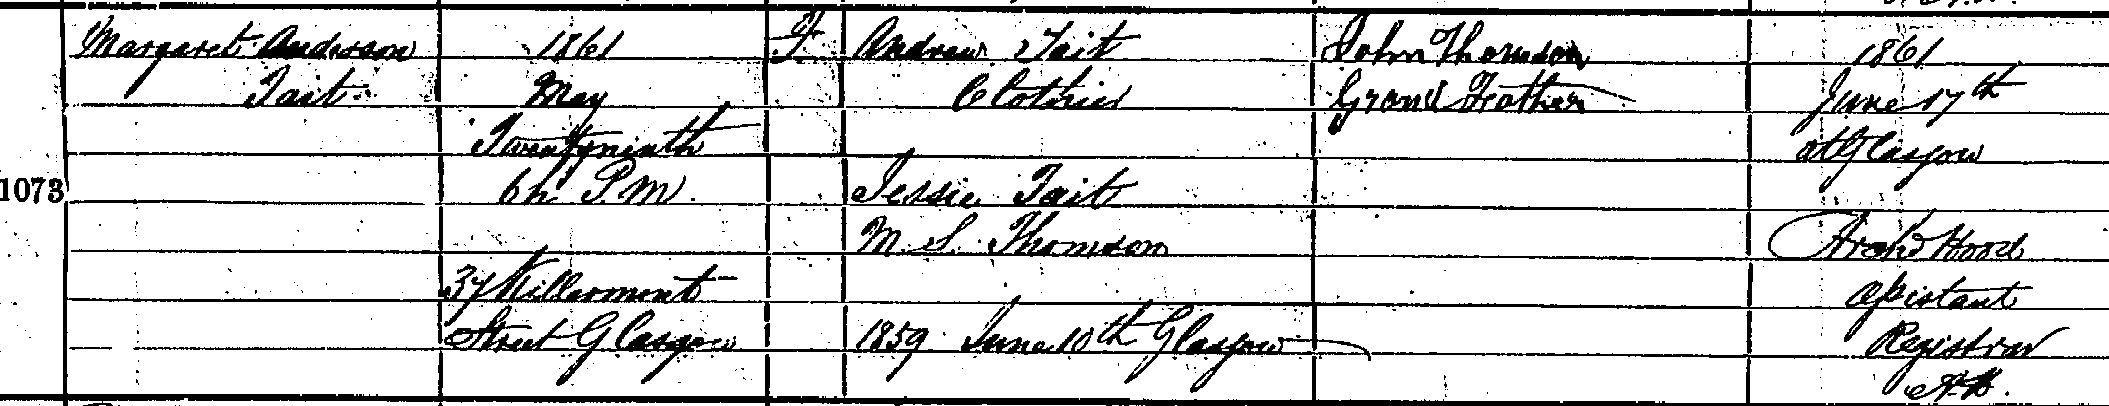 1073
Margaret Anderson
Tait
1861
May
Twentyninth
6h P.M.
37 Killermont
Street Glasgow
F
Andrew Tait
Clothier
Jessie Tait
M.S. Thomson
1859 June 10th Glasgow
John Thomson
Grand Father
1861
June 17th
at Glasgow
Archd Hood
Assistant
Registrar
A.H.